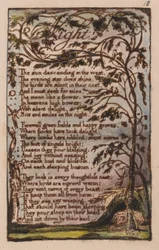 Night
The sun descending in the west.
The evening star does shine.
The birds are silent in their nest,
And I must seek for mine,
The moon like a flower,
In heavens high bower;
With silent delight,
Sits and smiles on the night.
Farewell green fields and happy groves,
Where flocks have took delight;
Where lambs have nibbled, silent
The feet of angels bright;
Unseen they pour blessing,
And joy without ceasing,
On each bud and blossom,
And each sleeping bosom.
They look in every thoughtless nest,
Where birds are coverd warm;
They visit caves of every beast,
To keep them all from harm;
If they see any weeping,
That should have been sleeping
They pour sleep on their head
And sit down by their bed.